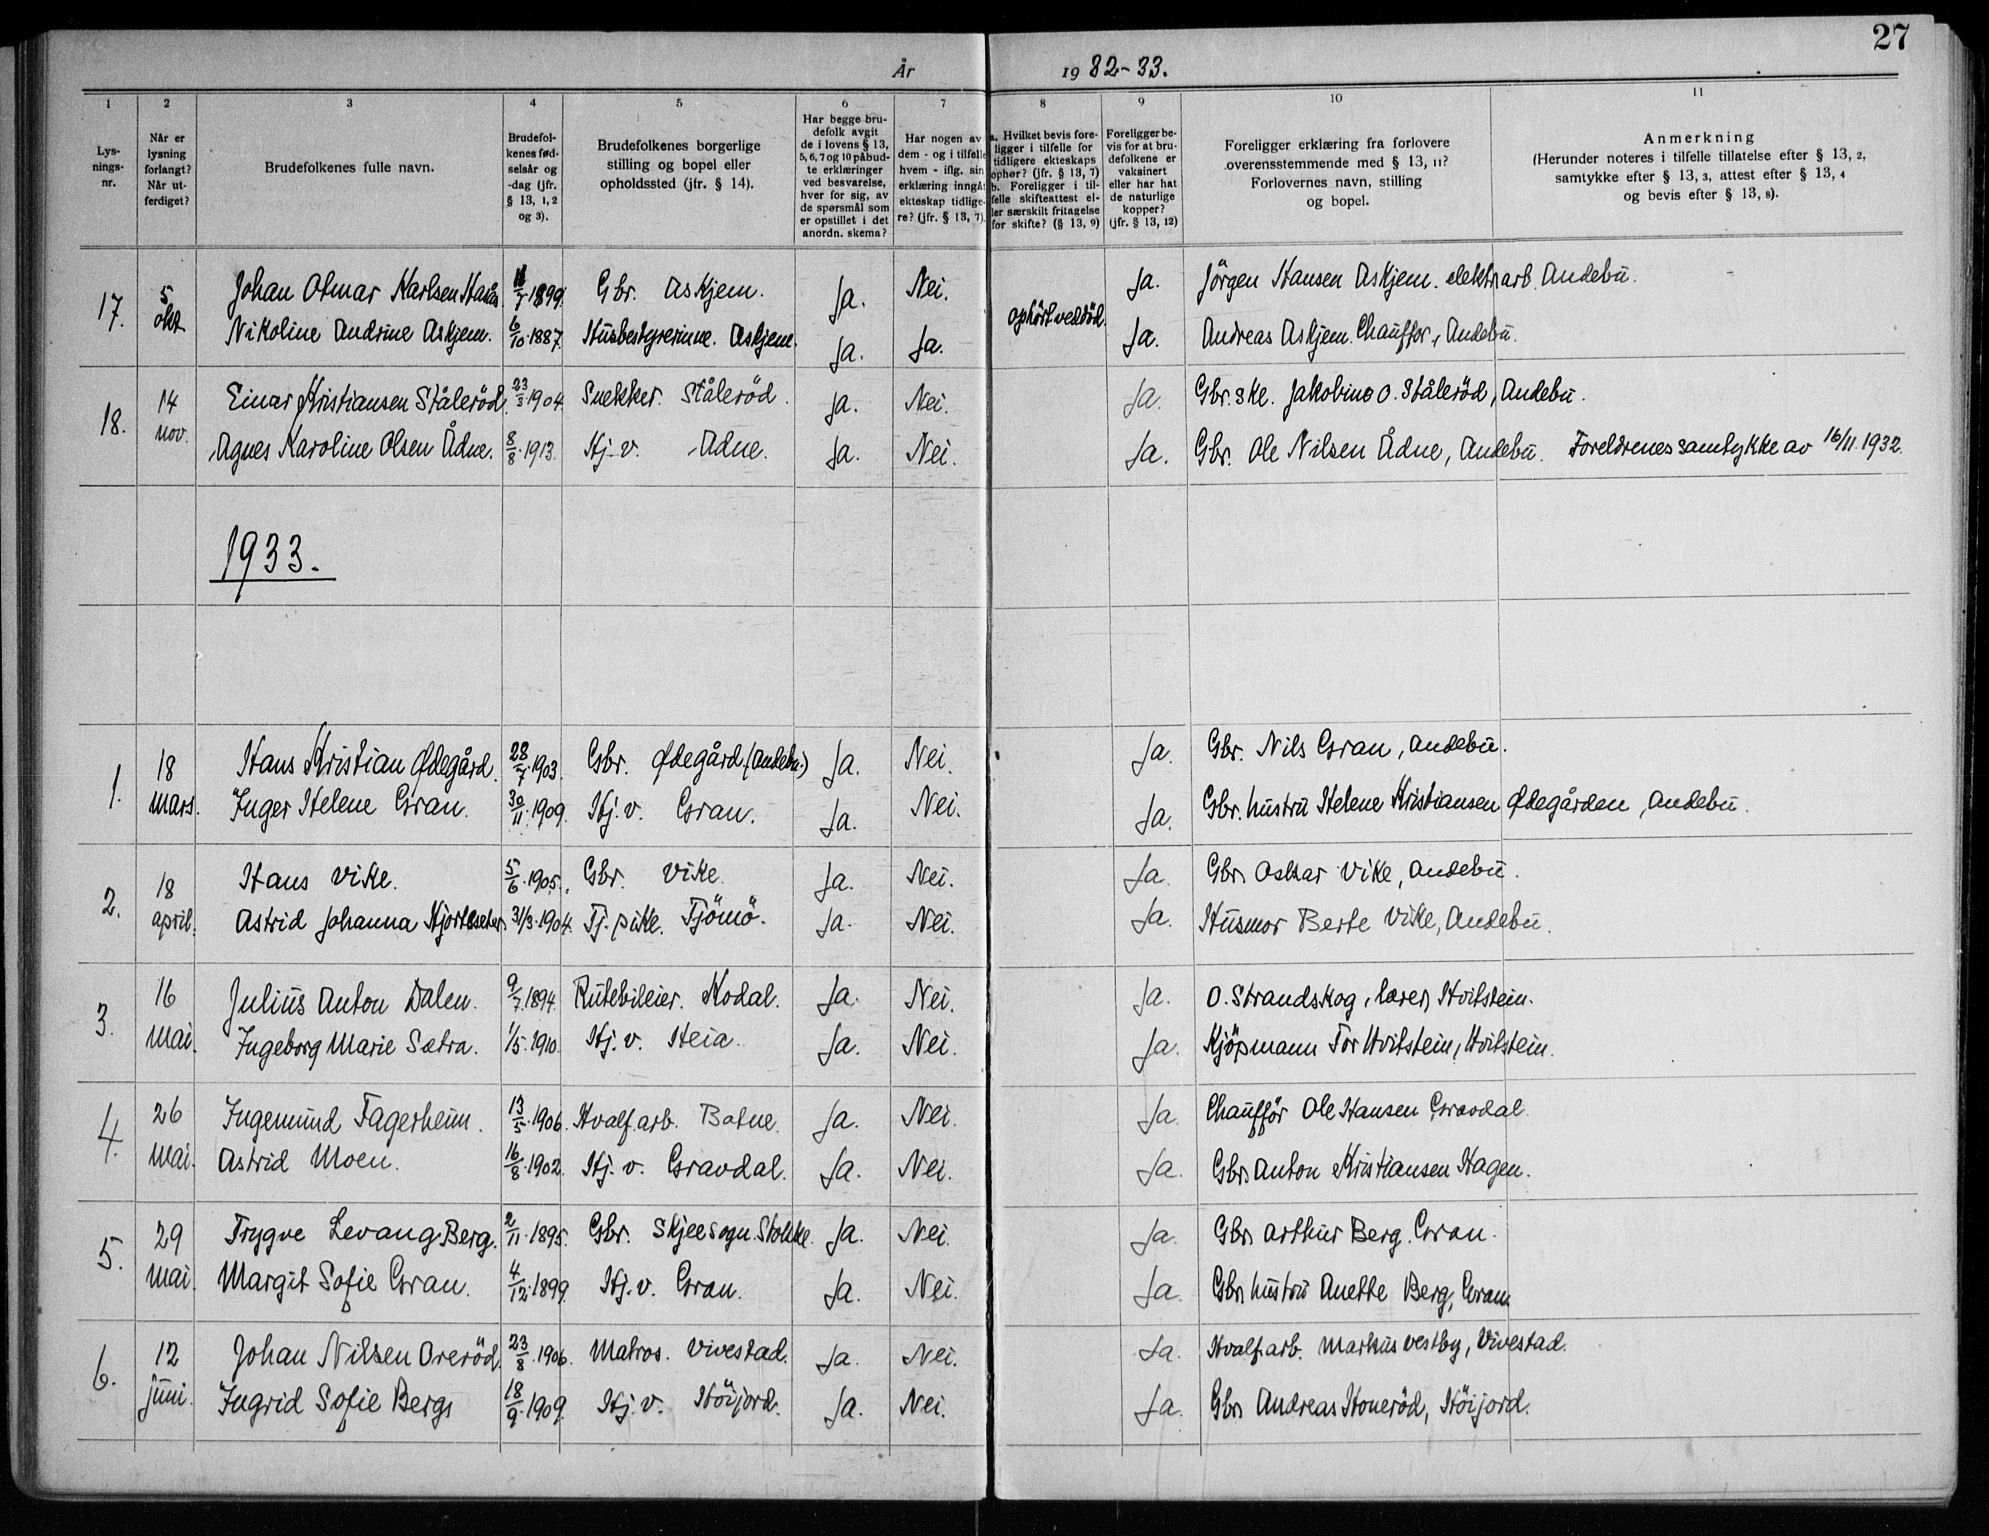 27
År 1932-33.
1 2 3 4 5 6 7 8 9 10 11
Lysningsnr.
Når er lysning forlangt? Når utferdiget?
Brudefolkenes fulle navn.
Brudefolkenes fødselsår og -dag (jfr. § 13, 1, 2 og 3).
Brudefolkenes borgerlige stilling og bopel eller opholdssted (jfr. § 14).
Har begge brudefolk avgit de i lovens § 13, 5, 6, 7 og 10 påbudte erklæringer ved besvarelse, hver for sig, av de spørsmål som er opstillet i det anordn. skema?
Har nogen av dem - og i tilfelle hvem - iflg. sin erklæring inngåt ekteskap tidligere? (jfr. § 13, 7).
a. Hvilket bevis foreligger i tilfelle for tidligere ekteskaps ophør? (jfr. § 13, 7) b. Foreligger i tilfelle skifteattest eller særskilt fritagelse for skifte? (§ 13, 9)
Foreligger bevis for at brudefolkene er vaksinert eller har hat de naturlige kopper? (jfr. § 13, 12)
Foreligger erklæring fra forlovere overensstemmende med § 13, 11? Forlovernes navn, stilling og bopel.
Anmerkning (Herunder noteres i tilfelle tillatelse efter § 13, 2, samtykke efter § 13, 3, attest efter § 13, 4 og bevis efter § 13, 8).
17. 5 Johan Otmar Karlsen 1899. Gbr. Askjem. Ja. Nei. Ja. Jörgen Hansen Askjem. elektr. arb. Andebu.
okt Nikoline Andrine Askjem. 6/10.1887. Husbestyrerinne. Askjem. Ja. Ja. ophört ved död. Ja. Andreas Askjem. Chauffør, Andebu.
18. 14 Einar Kristiansen Ståleröd. 23/3.1904. Snekker. Ståleröd. Ja. Nei. Ja. Gbr. ske. Jakobine O. Ståleröd, Andebu.
nov. Agnes Karoline Olsen Ådne. 8/8.1913. Hj. v. Ådne. Ja. Nei. Ja. Gbr. Ole Nilsen Ådne, Andebu. Foreldrenes samtykke av 16/11.1932.
1933.
1. 18 Hans Kristian Ødegård. 28/7.1903. Gbr. Ødegård. (Andebu.) Ja. Nei. Ja. Gbr. Nils Gran, Andebu.
mars. Inger Helene Gran. 30/11.1909. Hj. v. Gran. Ja. Nei. Ja. Gbr. hustru Helene Kristiansen Ødegården, Andebu.
2. 18 Hans Vike. 5/6.1905. Gbr. Vike. Ja. Nei. Ja. Gbr. Oskar Vike, Andebu.
april. Astrid Johanna Hjortseter. 31/3.1904. Tj. pike. Tjömö. Ja. Nei. Ja. Husmor Berte Vike, Andebu.
3. 16 Julius Anton Dalen. 9/7.1894. Rutebileier. Kodal. Ja. Nei. Ja. O. Strandskog, lærer, Hvitstein.
mai. Ingeborg Marie Sætra. 1/5.1910. Hj. v. Heia. Ja. Nei. Ja. Kjöpmann Tor Hvitstein, Hvitstein.
4. 26 Ingemund Fagerheim. 13/5.1906. Hvalf. arb. Botne. Ja. Nei. Ja. Chaufför Ole Hansen Gravdal.
mai. Astrid Moen. 16/8.1902. Hj. v. Gravdal. Ja. Nei. Ja. Gbr. Anton Kristiansen Hagen.
5. 29 Trygve Levang Berg. 2/11.1895. Gbr. Skjee sogn. Stokke. Ja. Nei. Ja. Gbr. Arthur Berg. Gran.
mai. Margit Sofie Gran. 4/12.1899. Hj. v. Gran. Ja. Nei. Ja. Gbr. hustru Anette Berg, Gran.
6. 12 Johan Nilsen Oreröd. 23/8.1906. Matros. Vivestad. Ja. Nei. Ja. Hvalf. arb. Markus Vestby, Vivestad.
juni. Ingrid Sofie Berg. 18/9.1909. Hj. v. Höijord. Ja. Nei. Ja. Gbr. Andreas Honeröd, Höijord.